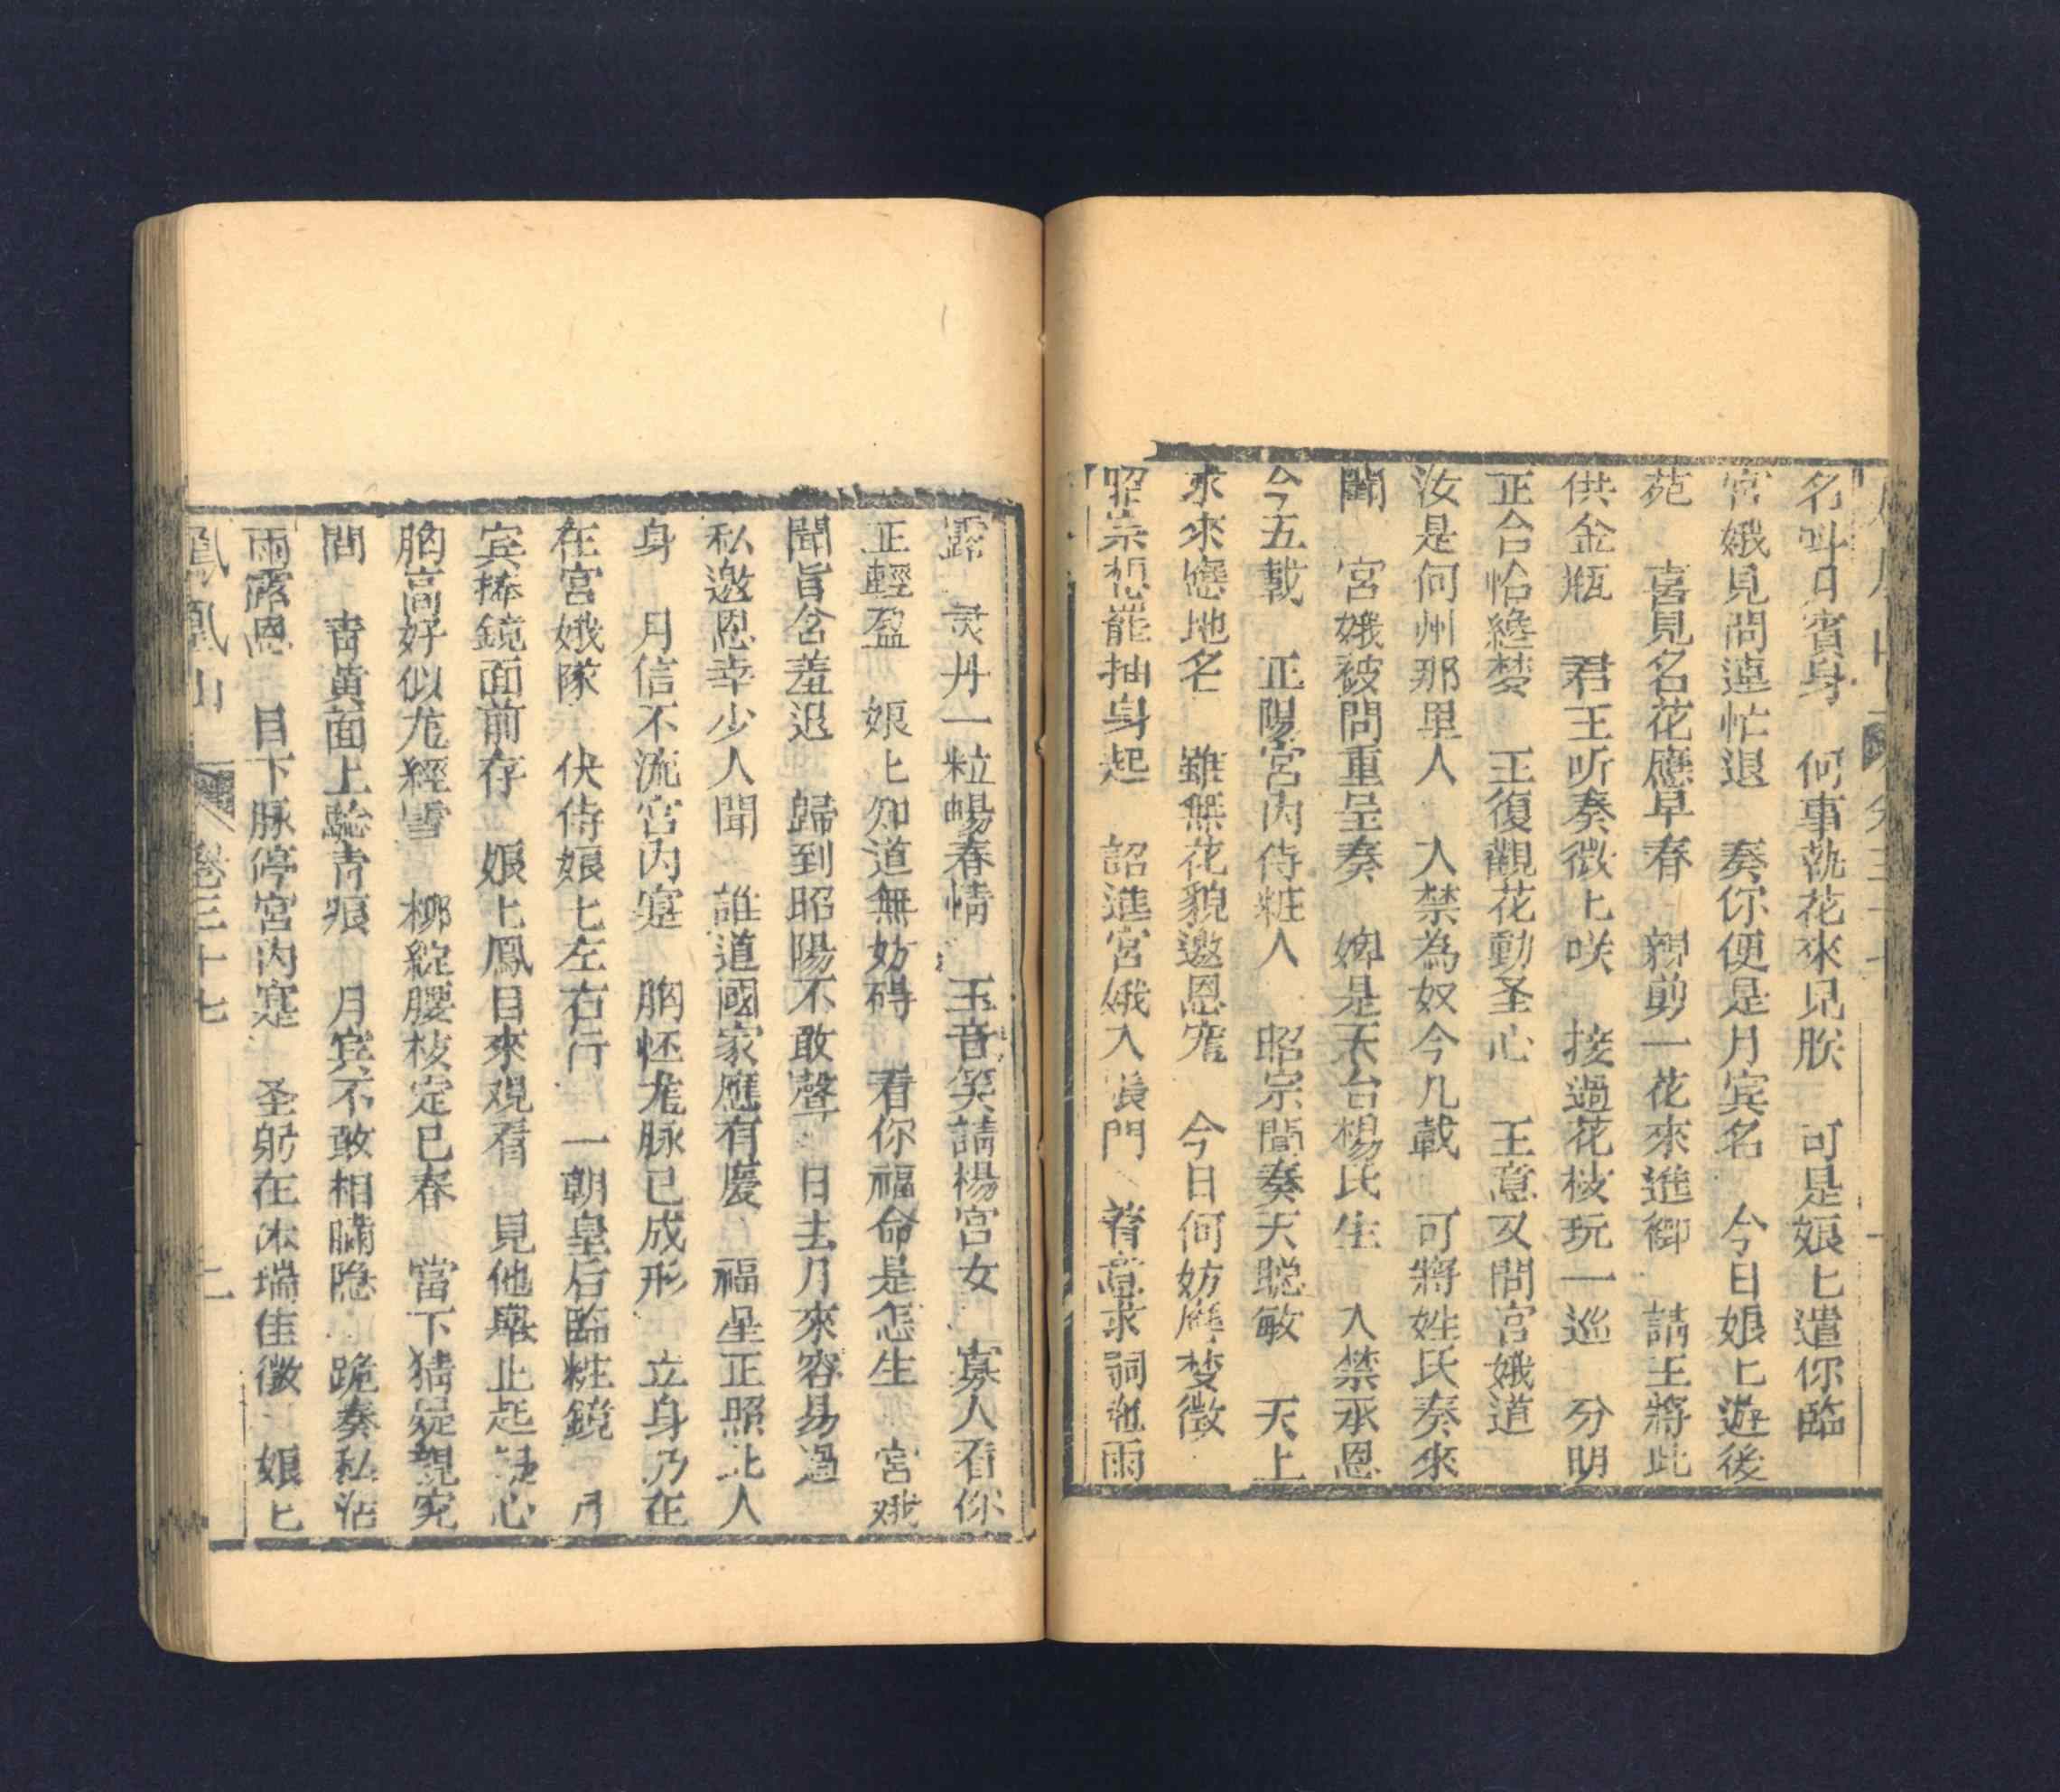 名叫月賓身　何事執花來見朕　可是娘匕遣你臨
宮娥見問連忙退　奏你便是月宾名　今日娘匕遊後
苑　喜見名花應早春　親剪一花來進御　請王將此
供金瓶　君王听奏微匕咲　接過花枝玩一巡　分明
正合恰纔梦　王復觀花動圣心　王意又問宮娥道
汝是何州那里人　入禁為奴今几載　可將姓氏奏來
聞　宮娥被問重呈奏　婢是天台楊氏生　入禁承恩
今五載　正陽宮內侍粧人　昭宗聞奏天聪敏　天上
求來應地名　雖無花貌邀恩寵　今日何妨應梦徵
昭崇想罷抽身起　詔進宮娥入張門　着意求嗣邀雨
露　灵丹一粒暢春情　玉音笑請楊宮女　寡人看你
正輕盈　娘匕知道無妨碍　看你福命是怎生　宮娥
聞旨含羞退　歸到昭陽不敢聲　日去月來容易過
私邀恩幸少人聞　誰道國家應有慶　福星正照此人
身　月信不流宮內寔　胸怀龙脉已成形　立身乃在
在宮娥隊　伏侍娘匕左右行　一朝皇后臨粧鏡　月
宾捧鏡面前存　娘匕鳳目來观看　見他舉止起疑心
胸高好似龙經雪　柳綻腰枝定已春　當下猜疑親究
問　青黃面上騐青痕　月宾不敢相瞞隐　跪奏私沾
雨露恩　目下脉停宮內寔　圣躬在沐瑞佳徵　娘匕
鳳凰山　卷三十七　二